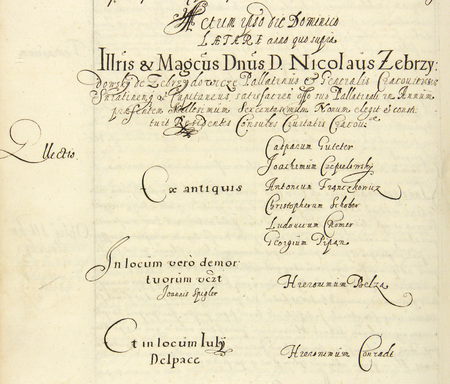 Actum ipso die Dominico
LÆTARE anno quo supra
Illris & Magcus Dnus D. Nicolaus Zebrzy:
dowsky de Zebrzydowice Pallatinus & Generalis Cracoviensis
Sniatinens & Capitaneus satisfaciens offo suo Pallatinali in Annum
præsentem Millesimum Sexcentesimum Nonum elegit & consti-
tuit Præsidentes Consules Civitatis Cracov:
Ellectio.
Casparum Guteter
Joachimum Czepielowsky
Ex antiquis
Antonium Franczkowicz
Christophorum Schober
Ludovicum Kromer
Georgium Pipan
In locum verò demor-
tuorum
Joannis Spigler
Hieronimum Pelza
Et in locum Iulÿ
Delpace
Hieronimum Conradt